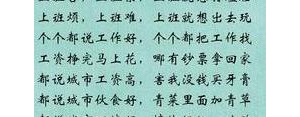 上班烦，上班难，上班就想出去玩
个个都说工作好，个个都把工作找
工资挣完马上花，哪有钞票拿回家
都说城市工资高，害我没钱买牙膏
都说城市伙食好，青菜里面加青草